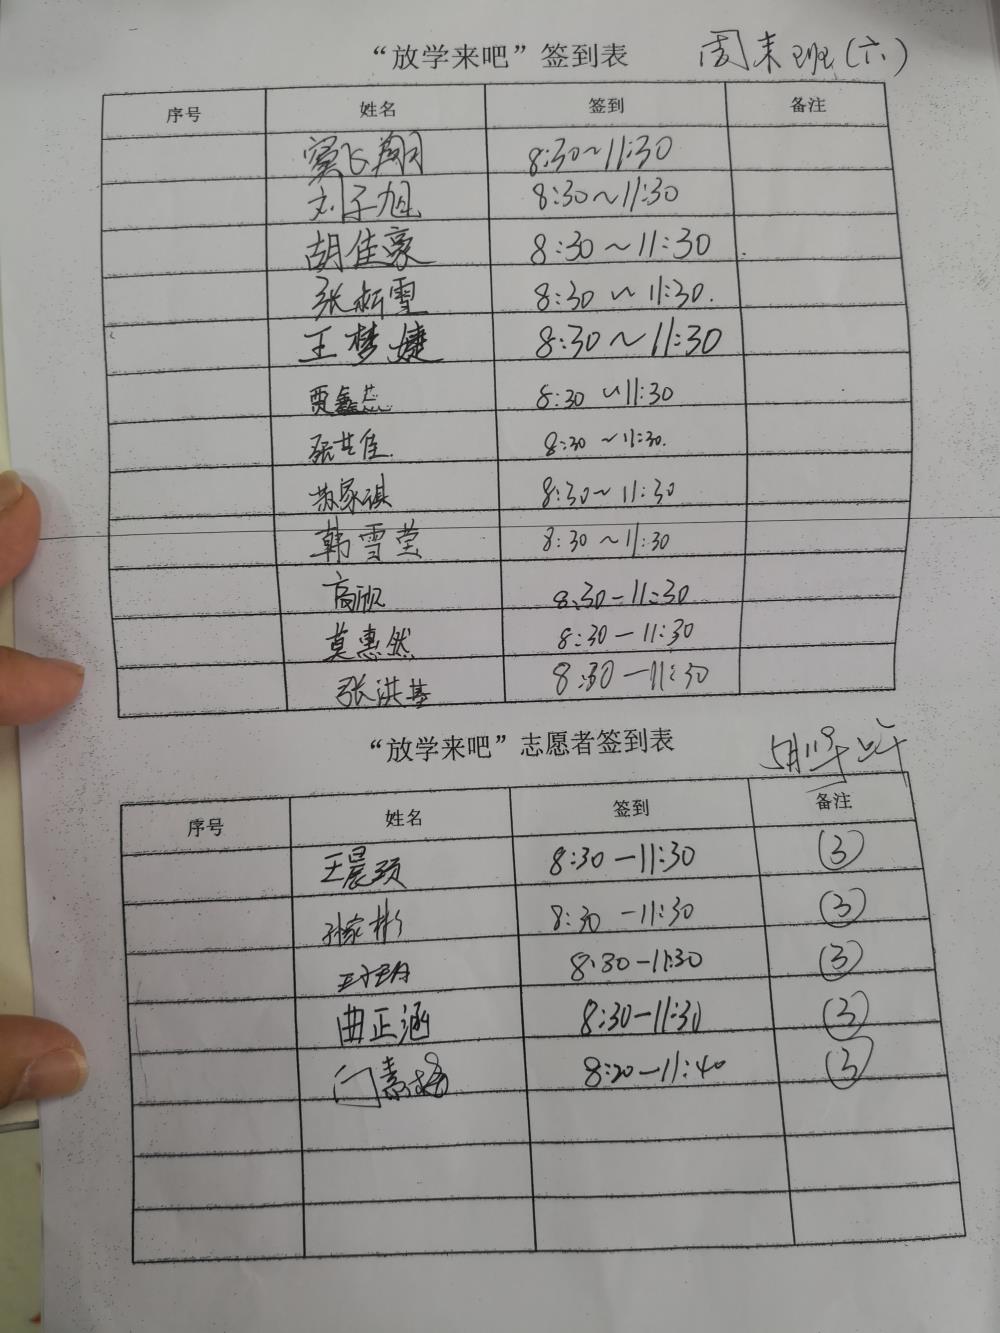 “放学来吧”签到表 周末班(六)
序号 姓名 签到 备注
窦飞翔 8:30~11:30
刘子旭 8:30~11:30
胡佳豪 8:30~11:30
张昕雪 8:30~11:30.
王梦婕 8:30~11:30
贾鑫蕊 8:30~11:30
张芸佳. 8:30~11:30.
苏家祺 8:30~11:30
韩雪莹 8:30~11:30
高欣 8:30-11:30
莫惠然 8:30-11:30
张洪基 8:30-11:30
“放学来吧”志愿者签到表 5月11号上午
序号 姓名 签到 备注
王晨颈 8:30-11:30 ③
孙家彬 8:30-11:30 ③
8:30-11:30 ③
曲正涵 8:30-11:30 ③
门素梅 8:20-11:40 ③